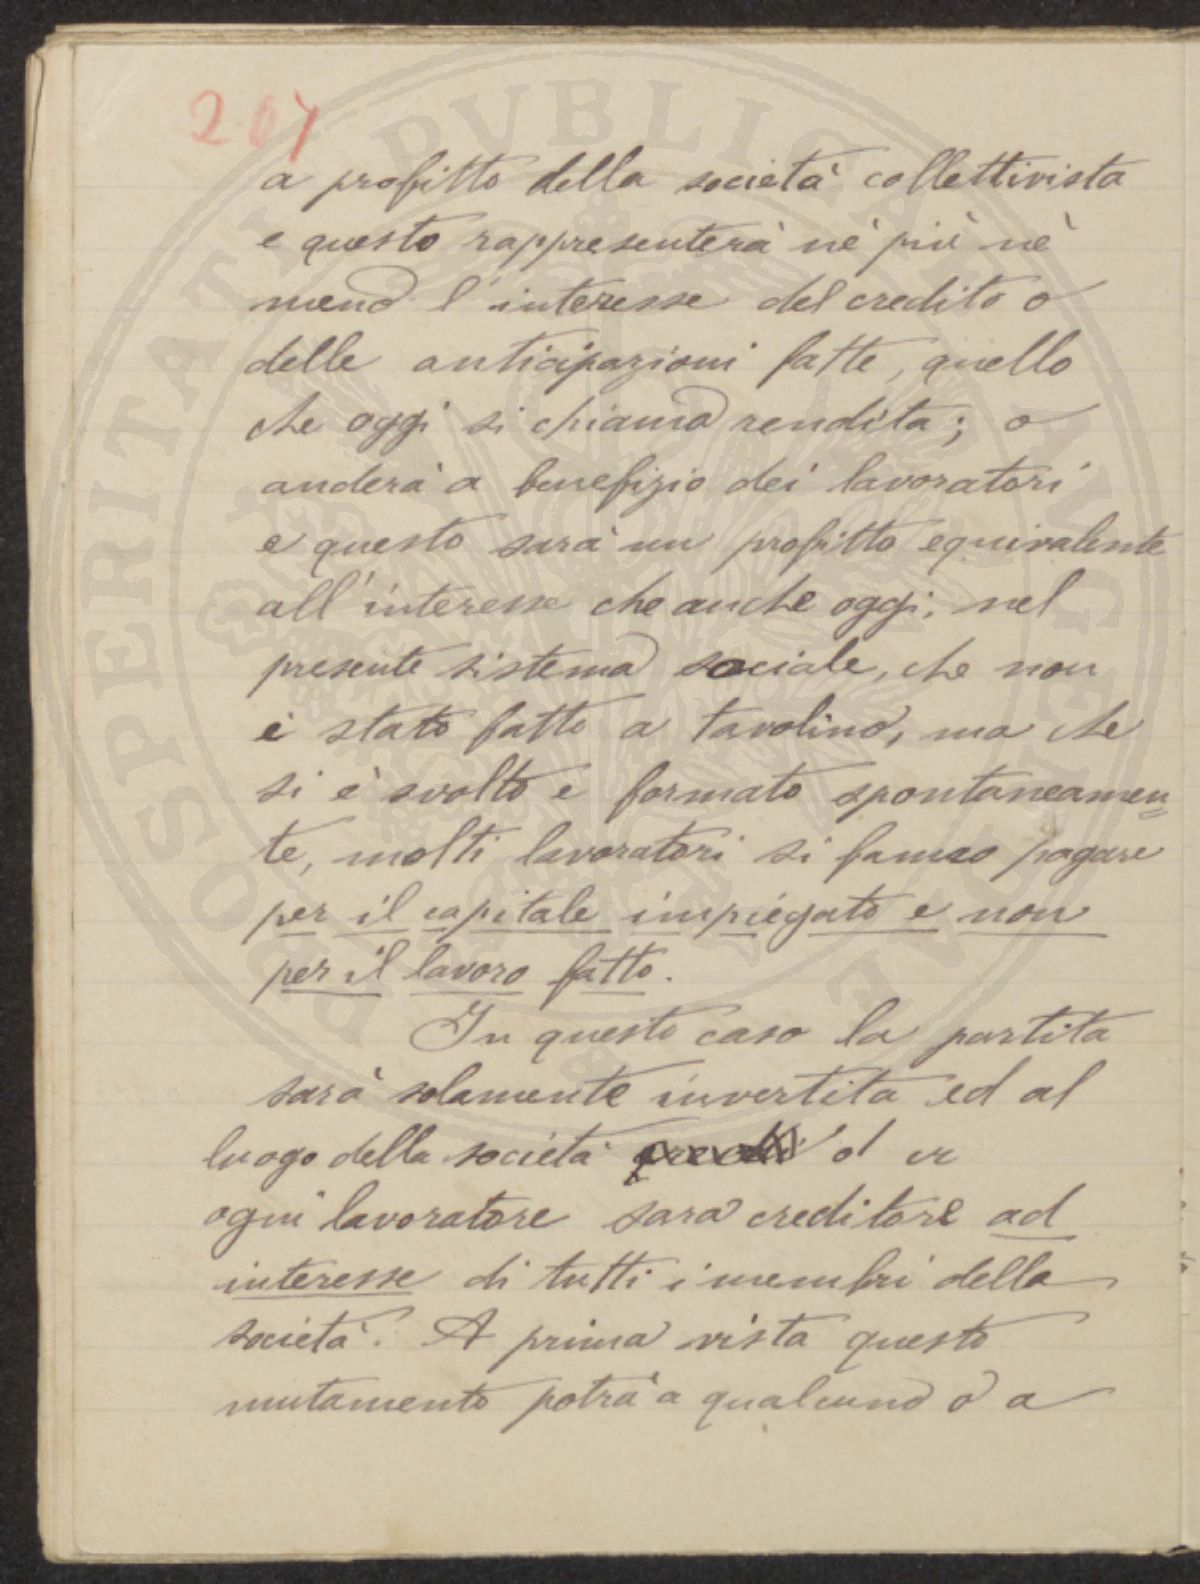 207
a profitto della società collettivista
e questo rappresenterà nè più nè
meno l'interesse del credito o
delle anticipazioni fatte, quello
che oggi si chiama rendita; o
anderà a benefizio dei lavoratori
e questo sarà un profitto equivalente
all'interesse che anche oggi, nel
presente sistema sociale, che non
è stato fatto a tavolino, ma che
si è svolto e formato spontaneamen=
te, molti lavoratori si fanno pagare
per il capitale impiegato e non
per il lavoro fatto.
In questo caso la partita
sarà solamente invertita ed al
luogo della società
ogni lavoratore sara creditore ad
interesse di tutti i membri della
società. A prima vista questo
mutamento potrà a qualcuno o a
PROSPERITATI PVBLICAE